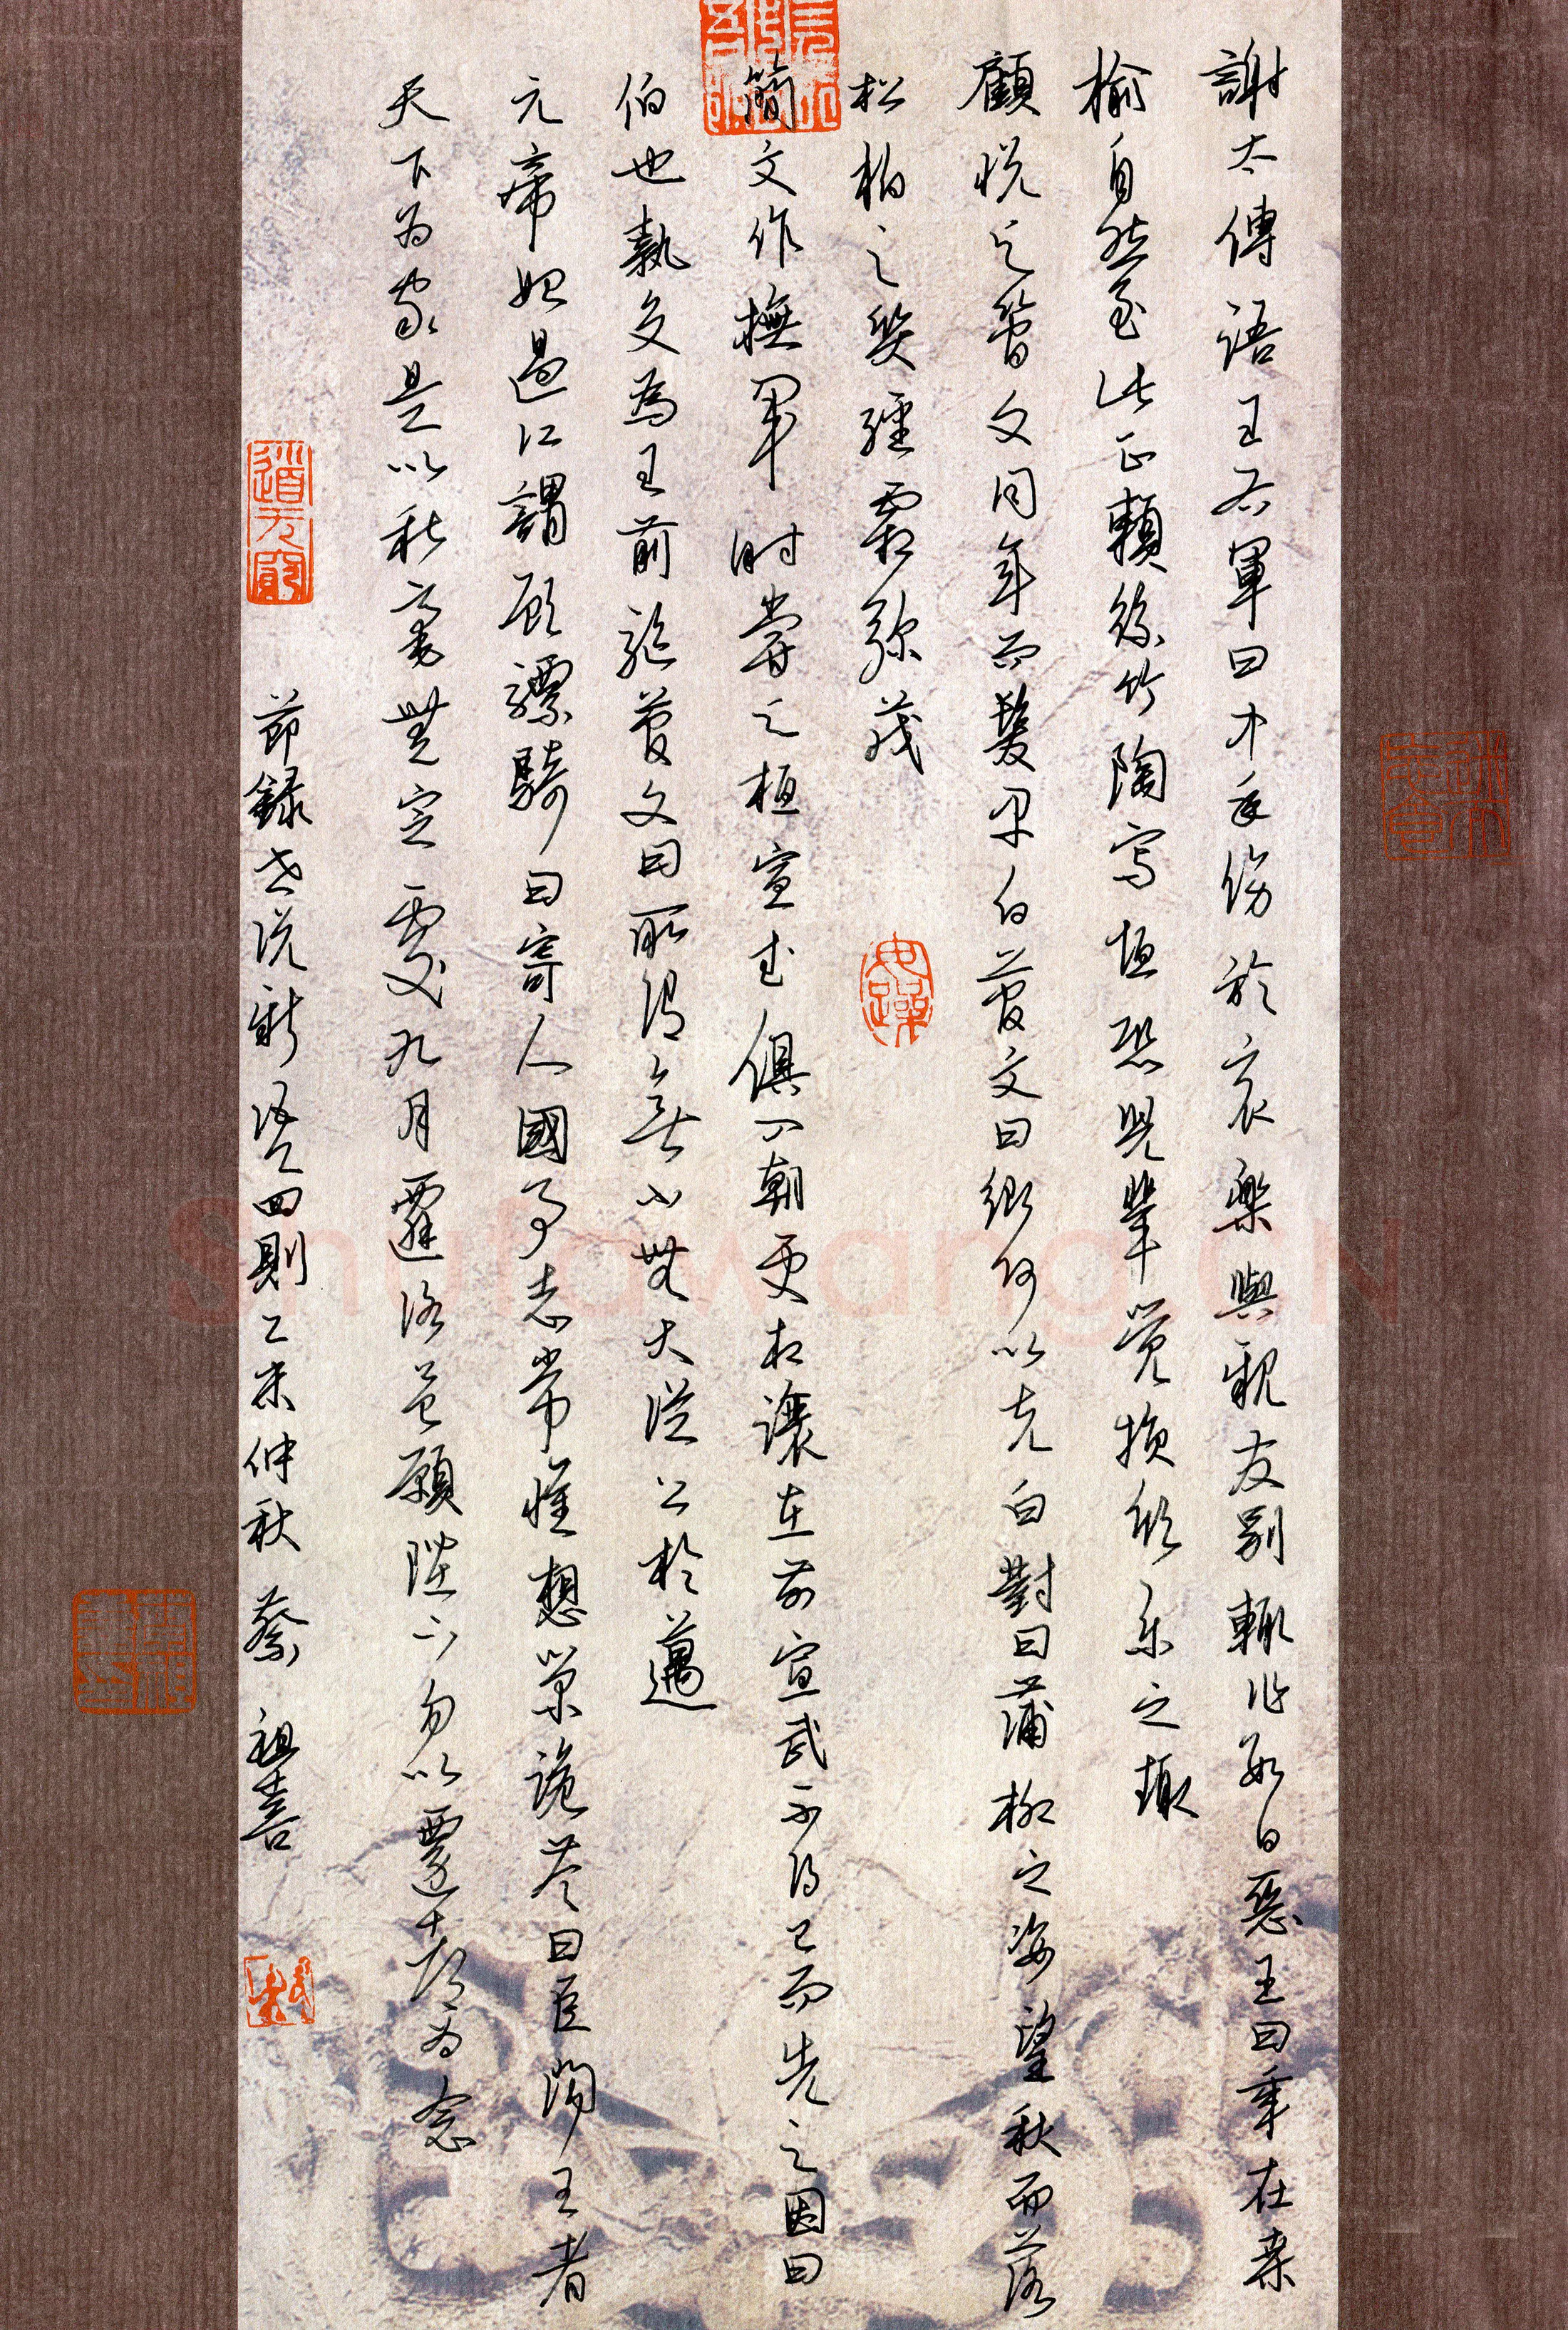 謝太傅語王右軍曰中年傷於哀樂與親友別輒作數日惡王曰年在桑
榆自然至此正賴絲竹陶写恒恐兒輩覺損欣乐之趣
顧悦与簡文同年而髮早白簡文曰卿何以先白對曰蒲柳之姿望秋而落
松柏之質經霜弥茂
簡文作撫軍时嘗与桓宣武俱入朝更相讓在前宣武不得已而先之因曰
伯也執殳為王前驅簡文曰所謂無小無大從公於邁
元帝始過江謂顾驃騎曰寄人國志常想榮詭答曰臣聞王者
天下为家是以耿亳無定處九月遷洛邑願陛下勿以遷都为念
節録世说新语四則乙未仲秋 蔡祖喜
道无窮
毋躁
Shufawang.CN